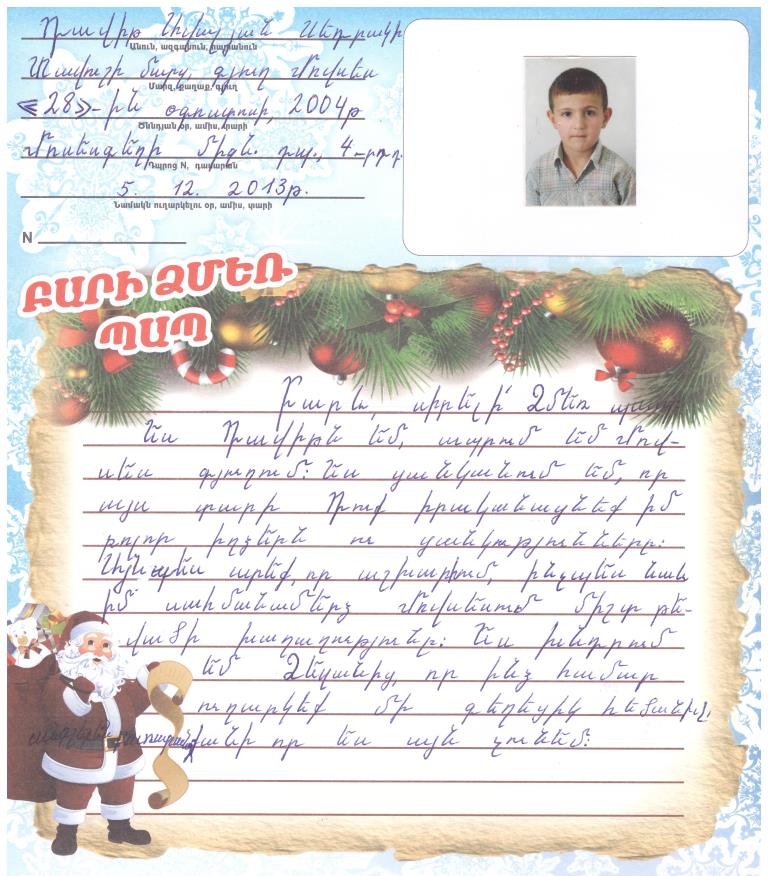 Դավիթ Սեդրակի
Անուն, ազգանուն, հայրանուն
Տավուշի մարզ, գյուղ Մովսես
Մարզ, քաղաք, գյուղ
«28»-ին օգոստոսի, 2004թ
Ծննդյան օր, ամիս, տարի
Մոսեսգեղի միջն. դպ., 4-րդ դ.
Դպրոց N, դասարան
5. 12. 2013թ.
Նամակն ուղարկելու օր, ամիս, տարի
N
ԲԱՐԻ ՁՄԵՌ
ՊԱՊ
Բարև, սիրելի՛ Ձմեռ պապ
Ես Դավիթն եմ, ապրում եմ Մով-
սես գյուղում: Ես ցանկանում եմ, որ
այս տարի Դուք իրականացնեք իմ
բոլոր իղձերն ու ցանկությունները:
Այնպես արեք, որ աշխարհում, ինչպես նաև
իմ սահմանամերձ Մովսեսում միշտ թե-
վածի խաղաղությունը: Ես խնդրում
եմ Ձեզանից, որ ինձ համար
ուղարկեք մի գեղեցիկ հեծանիվ,
անգլերեն բառարան քանի որ ես այն չունեմ: